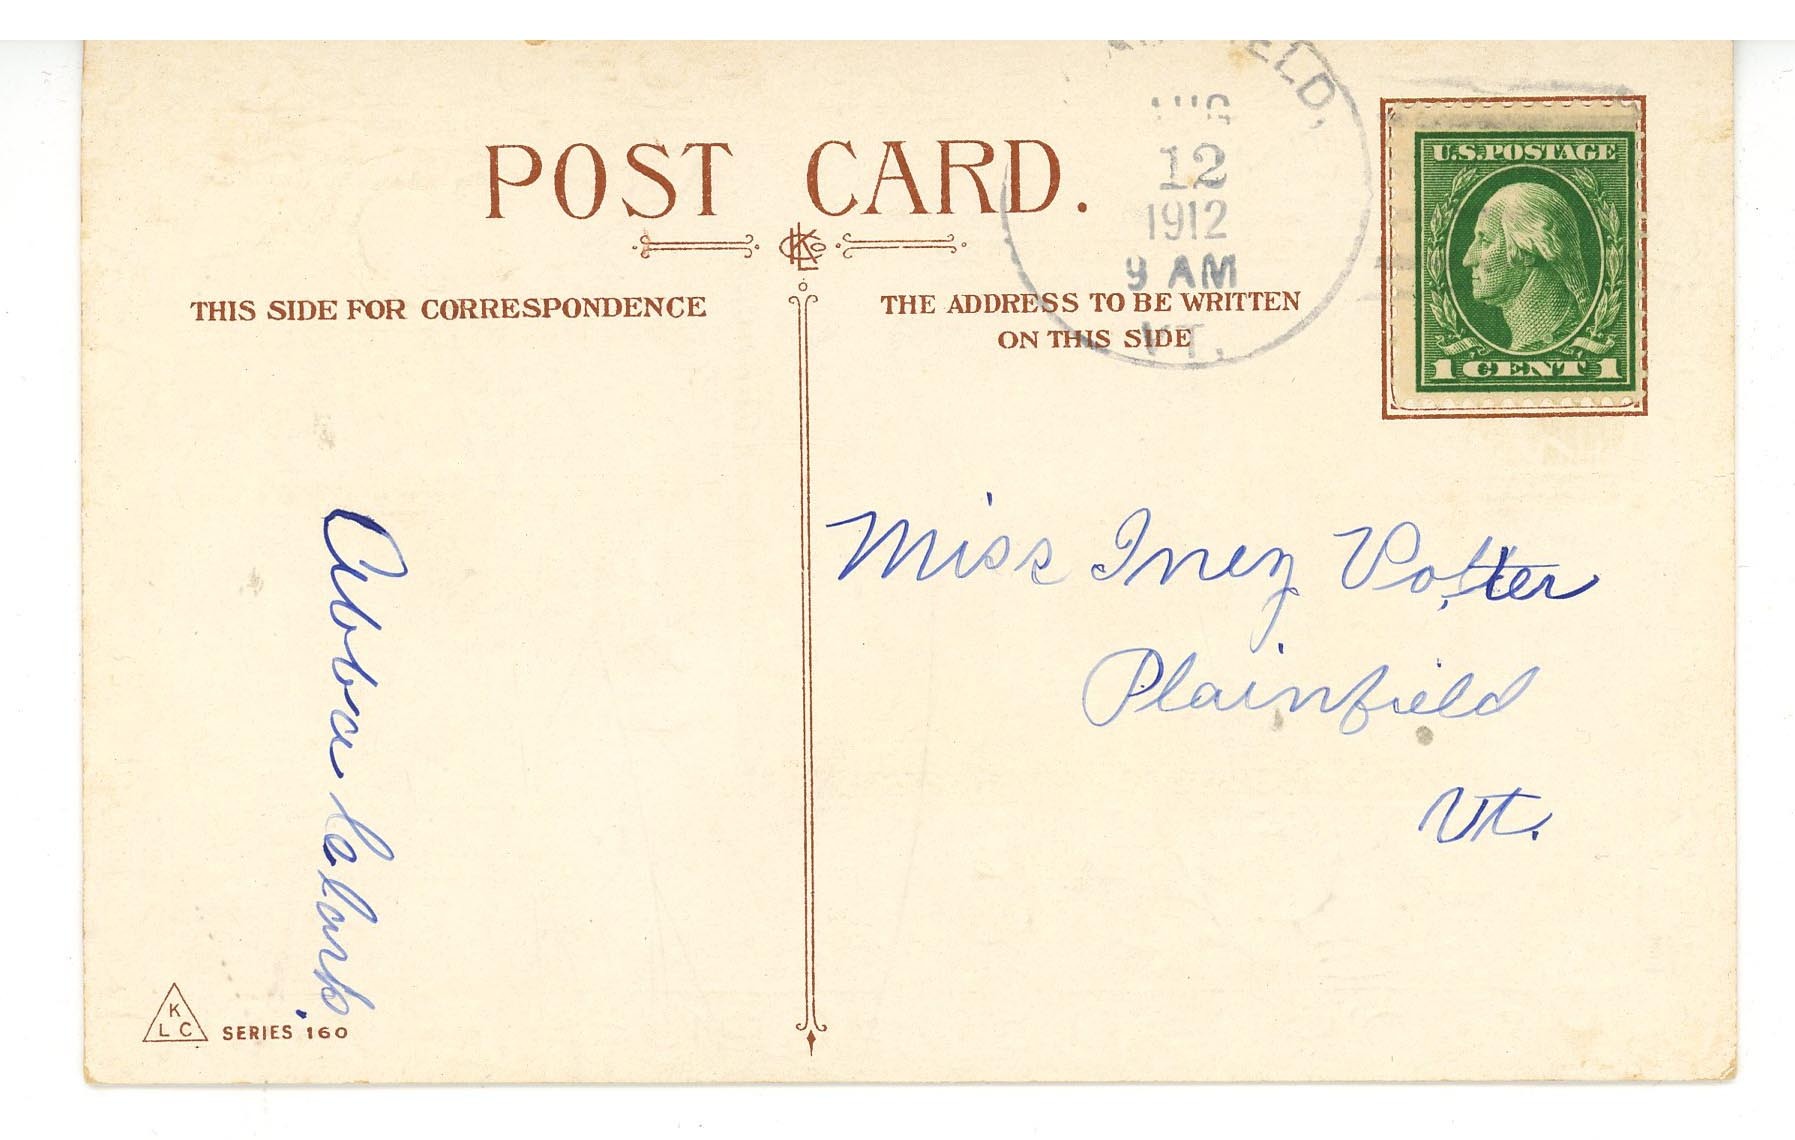 POST CARD.
KLCo
THIS SIDE FOR CORRESPONDENCE
THE ADDRESS TO BE WRITTEN
ON THIS SIDE
AUG
12
1912
9 AM
VT.
U.S. POSTAGE
1 CENT 1
Miss Inez Potter
Plainfield
Vt.
Abba Clark.
K
L C
SERIES 160